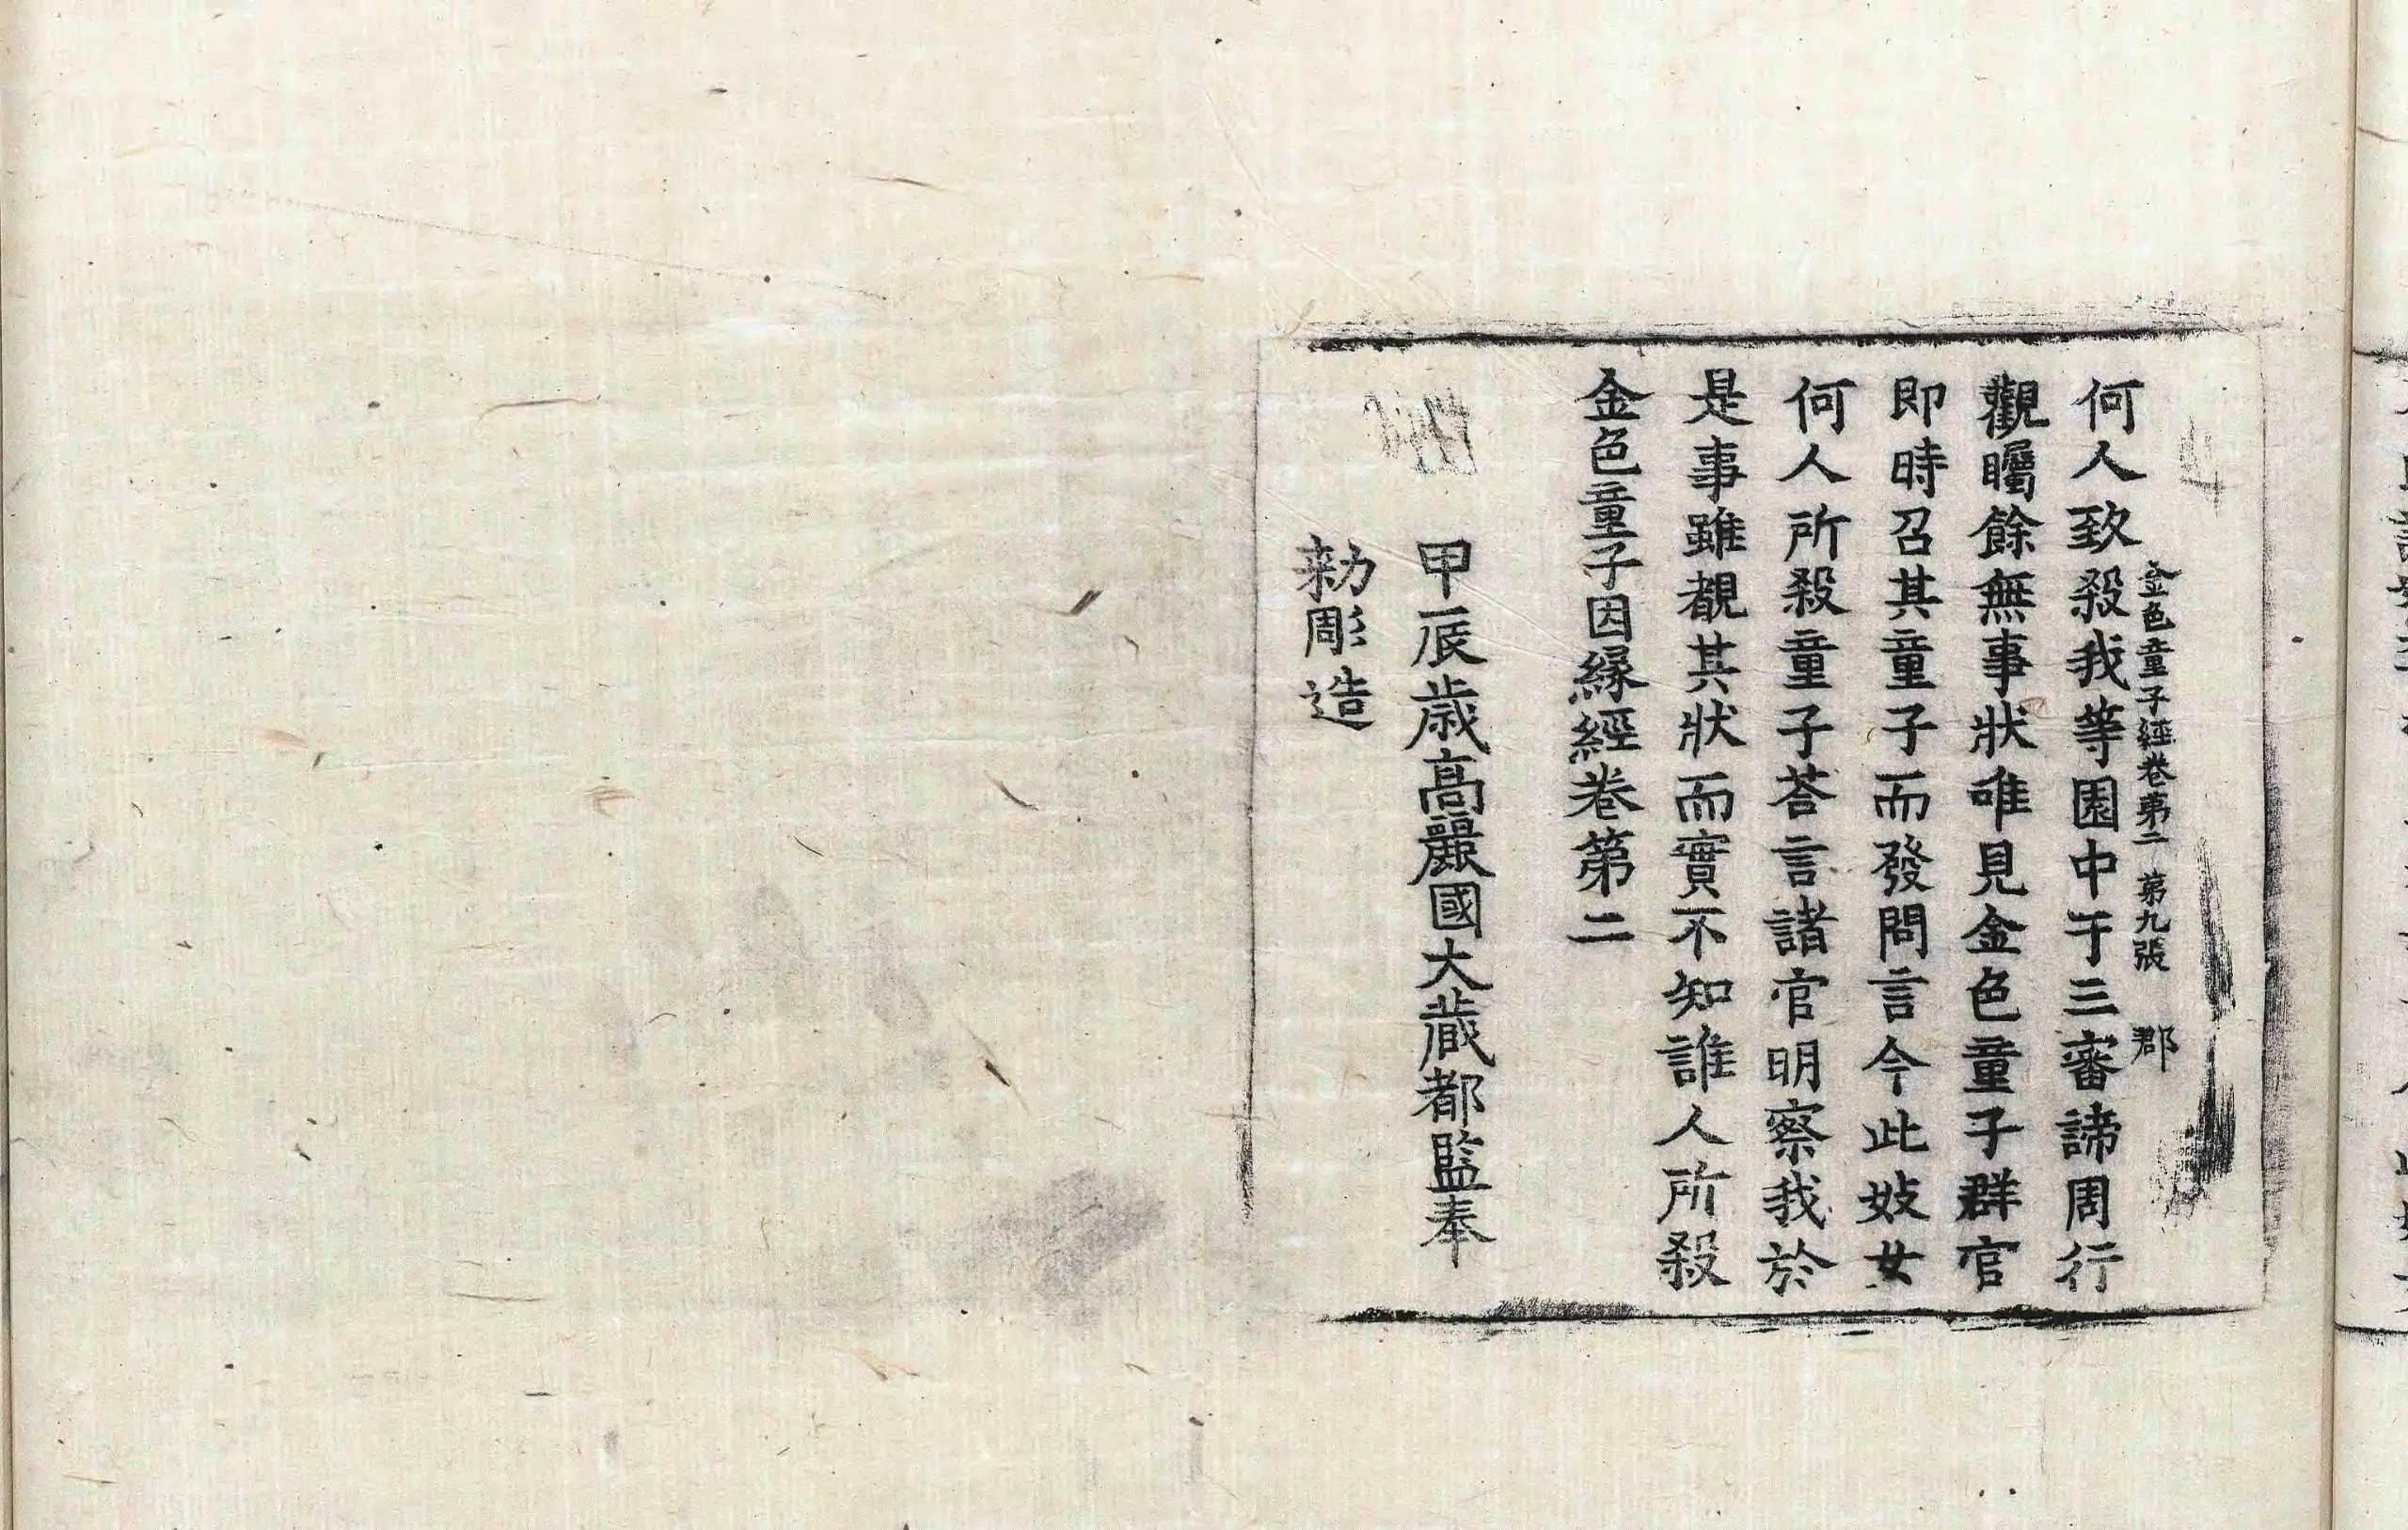 金色童子經卷第二 第九張 郡
何人致殺我等園中于三審諦周行
觀矚餘無事狀唯見金色童子群官
即時召其童子而發問言今此妓女
何人所殺童子荅言諸官明察我於
是事雖覩其狀而實不知誰人所殺
金色童子因緣經卷第二
甲辰歲高麗國大藏都監奉
勑彫造